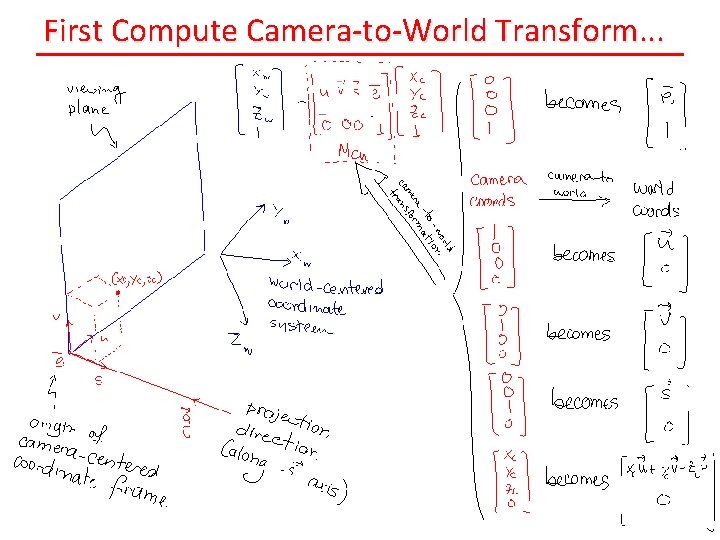 First Compute Camera-to-World Transform...
viewing
plane
[Xw Yw Zw 1] = [u v s e 0 0 0 1] [Xc Yc Zc 1]
Mcw
camera-to-world
transformation
[0 0 0 1] becomes [e 1]
camera
coords
camera-to
world
world
coords
[1 0 0 0] becomes [u 0]
[0 1 0 0] becomes [v 0]
[0 0 1 0] becomes [s 0]
[Xc Yc Zc 0] becomes
0
Yw
Xw
Zw
world-centered
coordinate
system
(xc, yc, zc)
v
u
e
s
projection
direction
(along -s axis)
origin of
camera-centered
coordinate frame